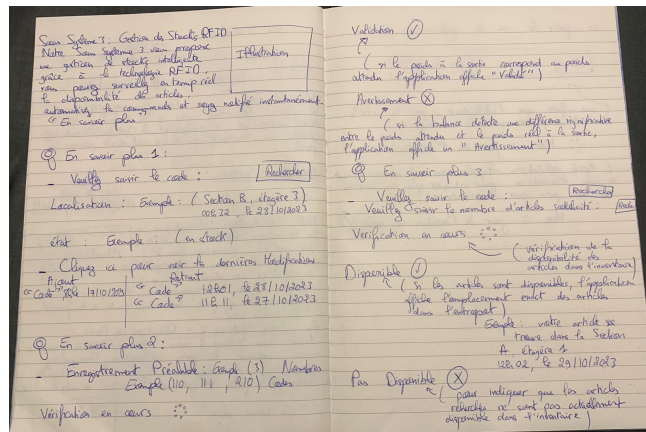 Sous Système 3 : Gestion de Stocks RFID
Notre Sous système 3 vous propose
une gestion de stocks intelligente
grâce à la technologie RFID.
vous pouvez surveiller en temps réel
la disponibilité des articles,
automatisez les commandes et soyez notifié instantanément.
"En savoir plus"
Illustration
En savoir plus 1 :
- Veuillez saisir le code :
Rechercher
Localisation : Exemple : (Section B, étagère 3)
le 28/10/2023
état : Exemple : (en stock)
- Cliquez ici pour voir les dernières Modifications
Ajout
Retrait
"Code" 17/10/20
"Code" 12h01, le 28/10/2023
"Code" 11h11, le 27/10/2023
En savoir plus 2 :
- Enregistrement Préalable : Exemple (3) Nombres
Exemple (110, 111, 210) Codes
Vérification en cours
Validation
(si le poids à la sortie correspond au poids
attendu l'application affiche "Valide")
Avertissement
(si la balance détecte une différence significative
entre le poids attendu et le poids réel à la sortie,
l'application affiche un "Avertissement")
En savoir plus 3 :
- Veuillez saisir le code :
Rechercher
- Veuillez saisir le nombre d'articles souhaité.
Vérification en cours
(vérification de la
disponibilité des
articles dans l'inventaire)
Disponible
(Si les articles sont disponibles, l'application
affiche l'emplacement exact des articles
dans l'entrepôt)
Exemple : votre article se
trouve dans la Section
A, étagère 1
12h02, le 29/10/2023
Pas Disponible
(pour indiquer que les articles
recherchés ne sont pas actuellement
disponible dans l'inventaire)